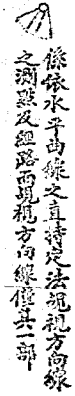 係依水平曲線之直接定法視視方向線
之測點及經路而現視方向線僅其一部